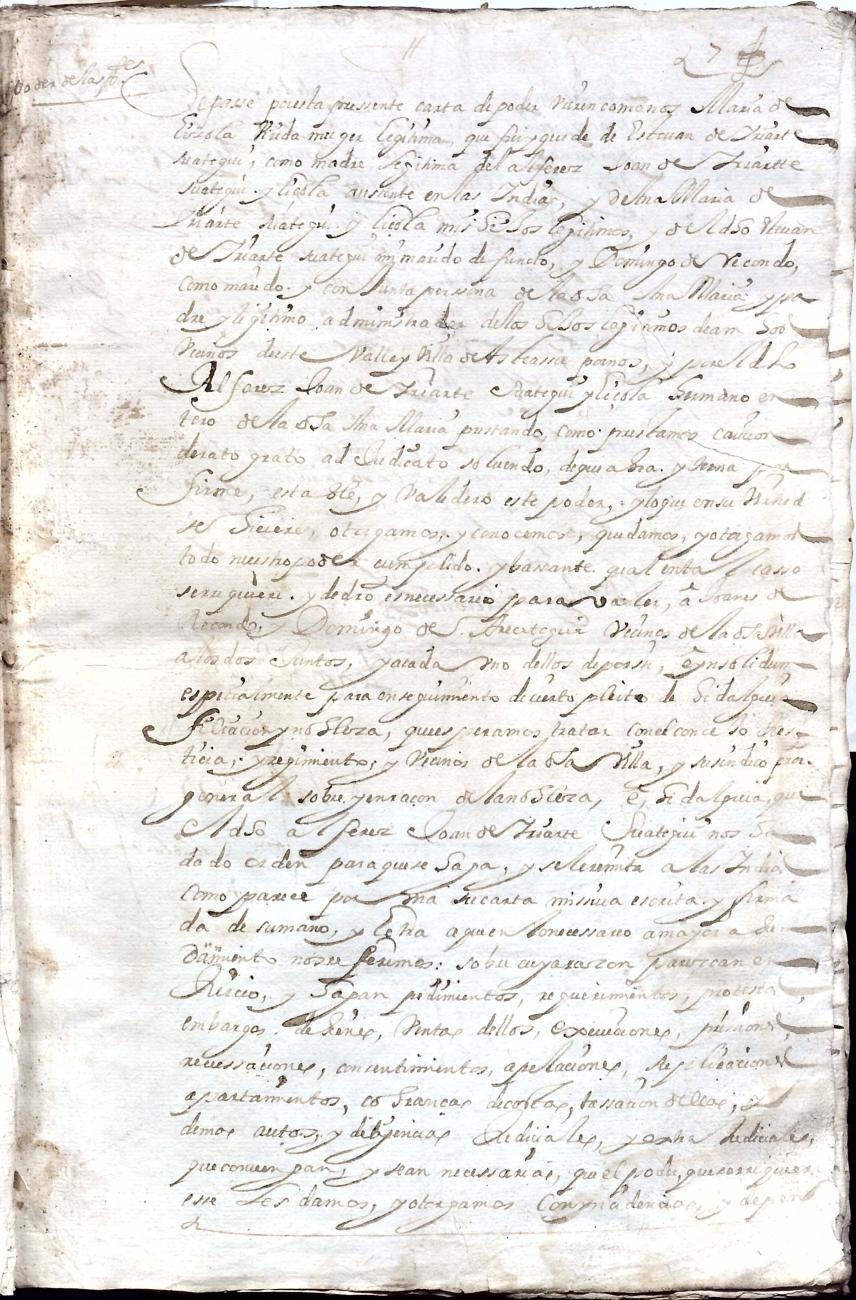 27
Poder de las ptes
Sepase por esta pressente carta de poder vieren como nos Maria de
Liçola Viuda muger legitima que fui y quede de Esteuan de Yriarte
suategui, como madre legitima del alferez Joan de Yriartte
suategui y liçola aussante en las Indias, y de Ana Maria de
Yriarte suategui y liçola mis hijos legitimos, y del dho Esteuan
de Yriarte suategui mi marido defuncto, y Domingo de Recondo,
como marido y conjunta persona de la dha Ana Maria y pa
dre y ligitimo administrador de los hijos legitimos de am
Vecinos deste Valle y Villa de Asteassu por nos, y por el dho
Alferez Joan de Yriarte suategui y liçola hermano en
tero de la dha Ana Maria prestando, como prestamos caucion
de rato grato ad Judicato soluendo, de que abra y terna por
firme, estable, y valedero este poder, y lo que en su virtud
se hiciere, otorgamos y conocemos, que damos, y otorgamos
todo nuestro poder cumplido y bastante qual en tal casso
se requiere y de dro es necessario para valer, â Joanes de
Recondo, y Domingo de Arecategui Vecinos de la dha Villa
a los dos Juntos, y a cada vno dellos de por si, e ynsolidun
especialmente para en seguimiento de cierto pleito de hidalguia
filiacion y nobleza, que esperamos tratar con el concejo Jus
ticia, y regimiento, y Vecinos de la dha Villa, y su sindico pror
general sobre y en raçon de la nobleza, e, hidalguia, que
el dho alferez Joan de Yriarte Suategui nos ha
dado orden para que se haga, y se le remita a las Indias
como parece por vna su carta missiua escrita y firma
da de su mano, y letra a que en lo necessario a mayor a
damiento nos referimos: sobre cuya razon parezcan en
Juicio, y hagan pedimientos, requerimientos, protestas
embargos de vienes, ventas dellos, execuciones, prisiones,
recussaciones, consentimientos, apelaciones, suplicaciones
apartamientos, cobranças de costas, tassacion dellas, y
demas autos, y diligencias Judiciales, y extra Judiciales,
que conuengan, y sean necessarias, que el poder, que se requiere
esse les damos, y otorgamos con yncidencias, y depen